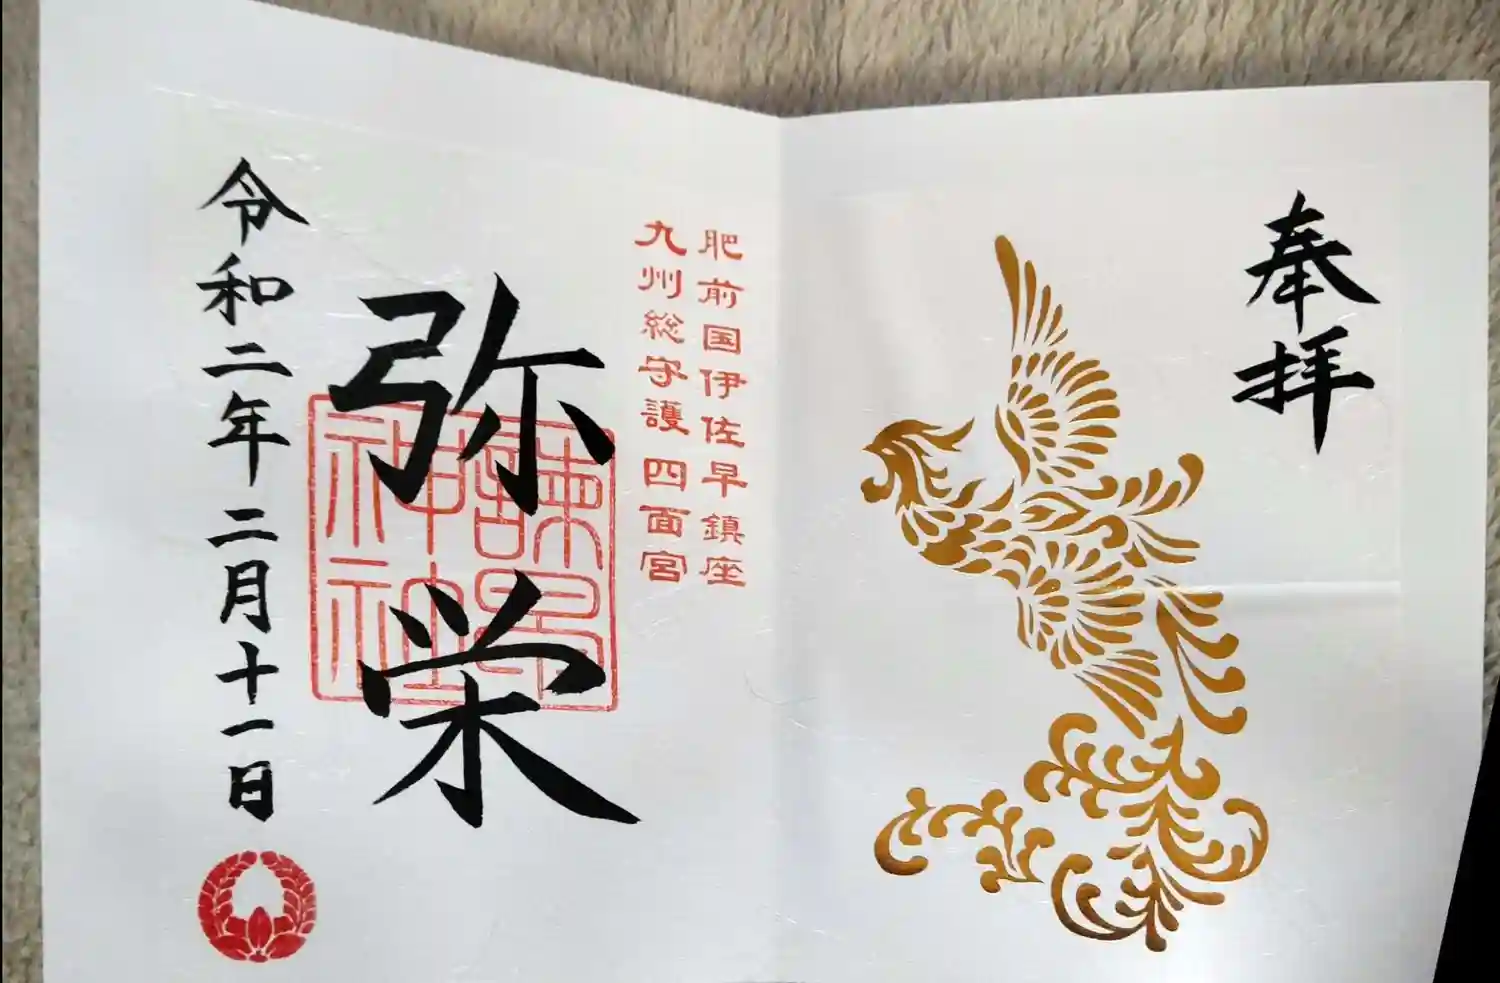 奉拝
肥前国伊佐早鎮座
九州総守護 四面宮
弥栄
諫早神社
令和二年二月十一日